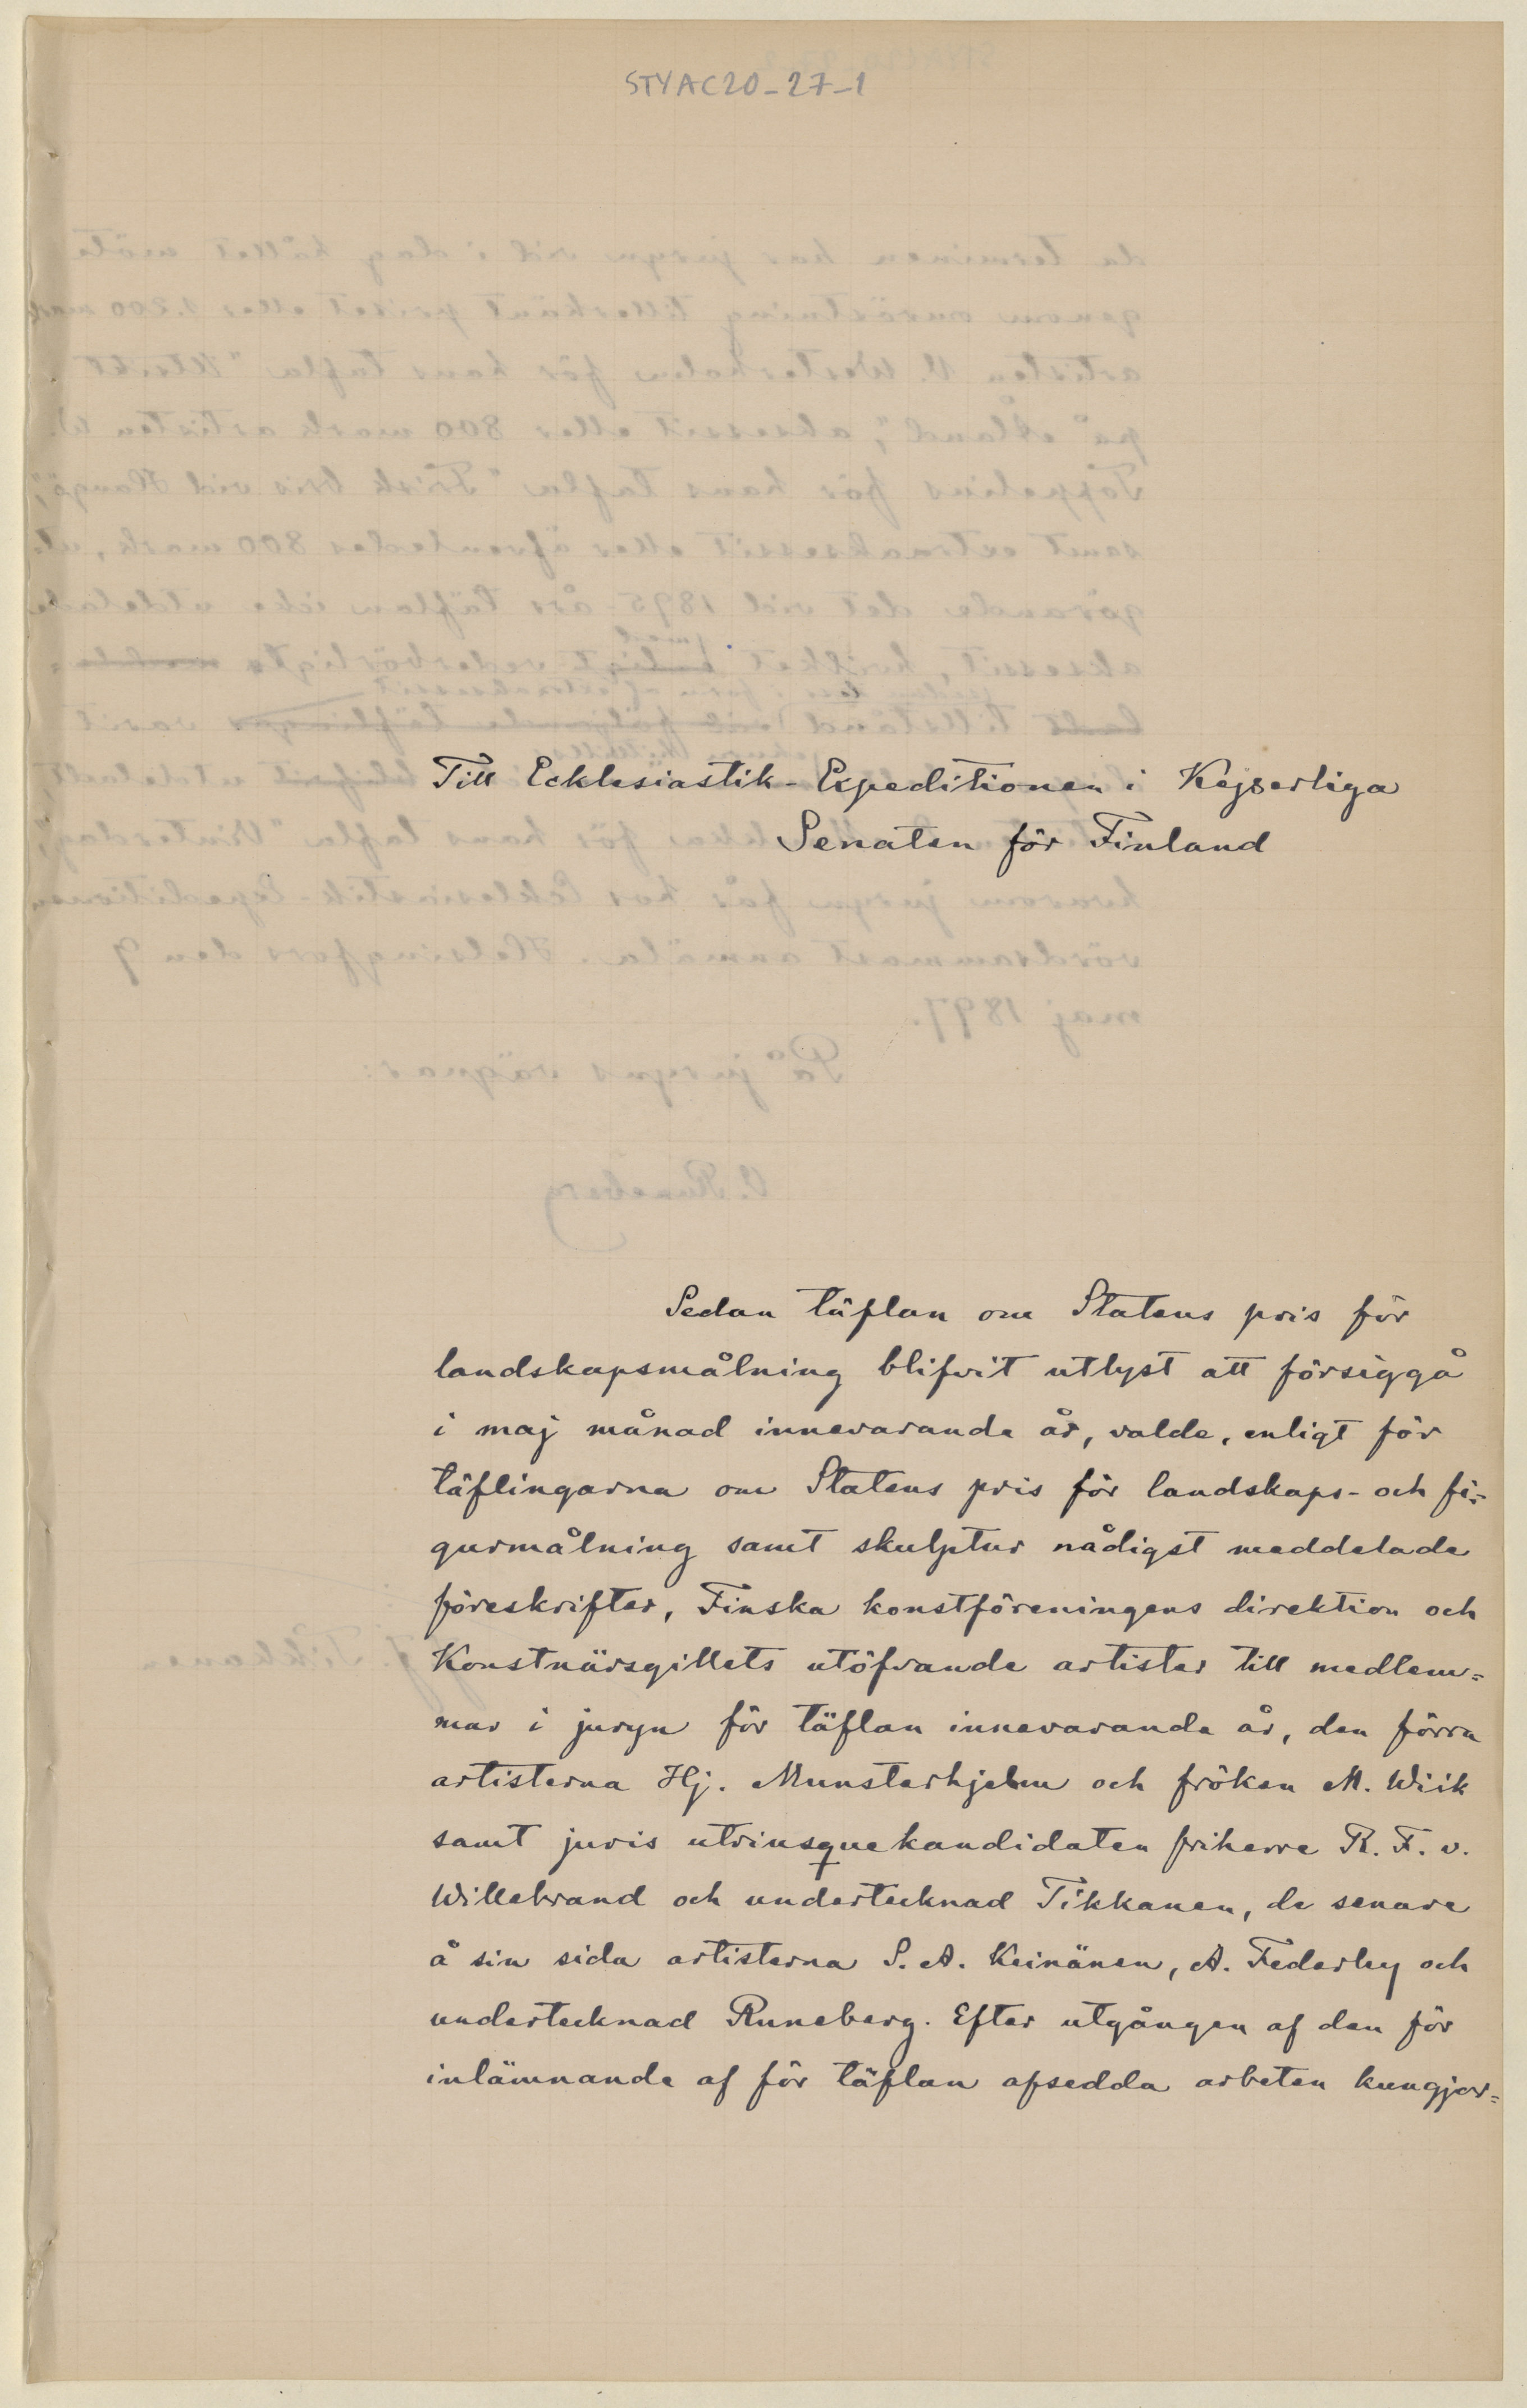 STYAC20-27-1
Till Ecklesiastik-Expeditionen i Kejserliga
Senaten för Finland
Sedan täflan om Statens pris för
landskapsmålning blifvit utlyst att försiggå
i maj månad innevarande år, valde, enligt för
täflingarna om Statens pris för landskaps- och fi-
gurmålning samt skulptur nådigst meddelade
föreskrifter, Finska konstföreningens direktion och
Konstnärsgillets utöfvande artister till medlem=
mar i juryn för täflan innevarande år, den förra
artisterna Hj. Munsterhjelm och fröken M. Wiik
samt juris utriusque kandidaten friherre R. F. v.
Willebrand och undertecknad Tikkanen, de senare
å sin sida artisterna S. A. Keinänen, A. Federley och
undertecknad Runeberg. Efter utgången af den för
inlämnande af för täflan afsedda arbeten kungjor=